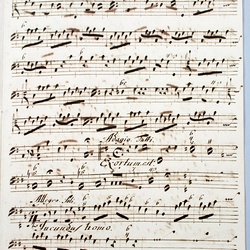 Adagio Tutti.
Exortum est.
Allegro. Soli
Jucundus homo.